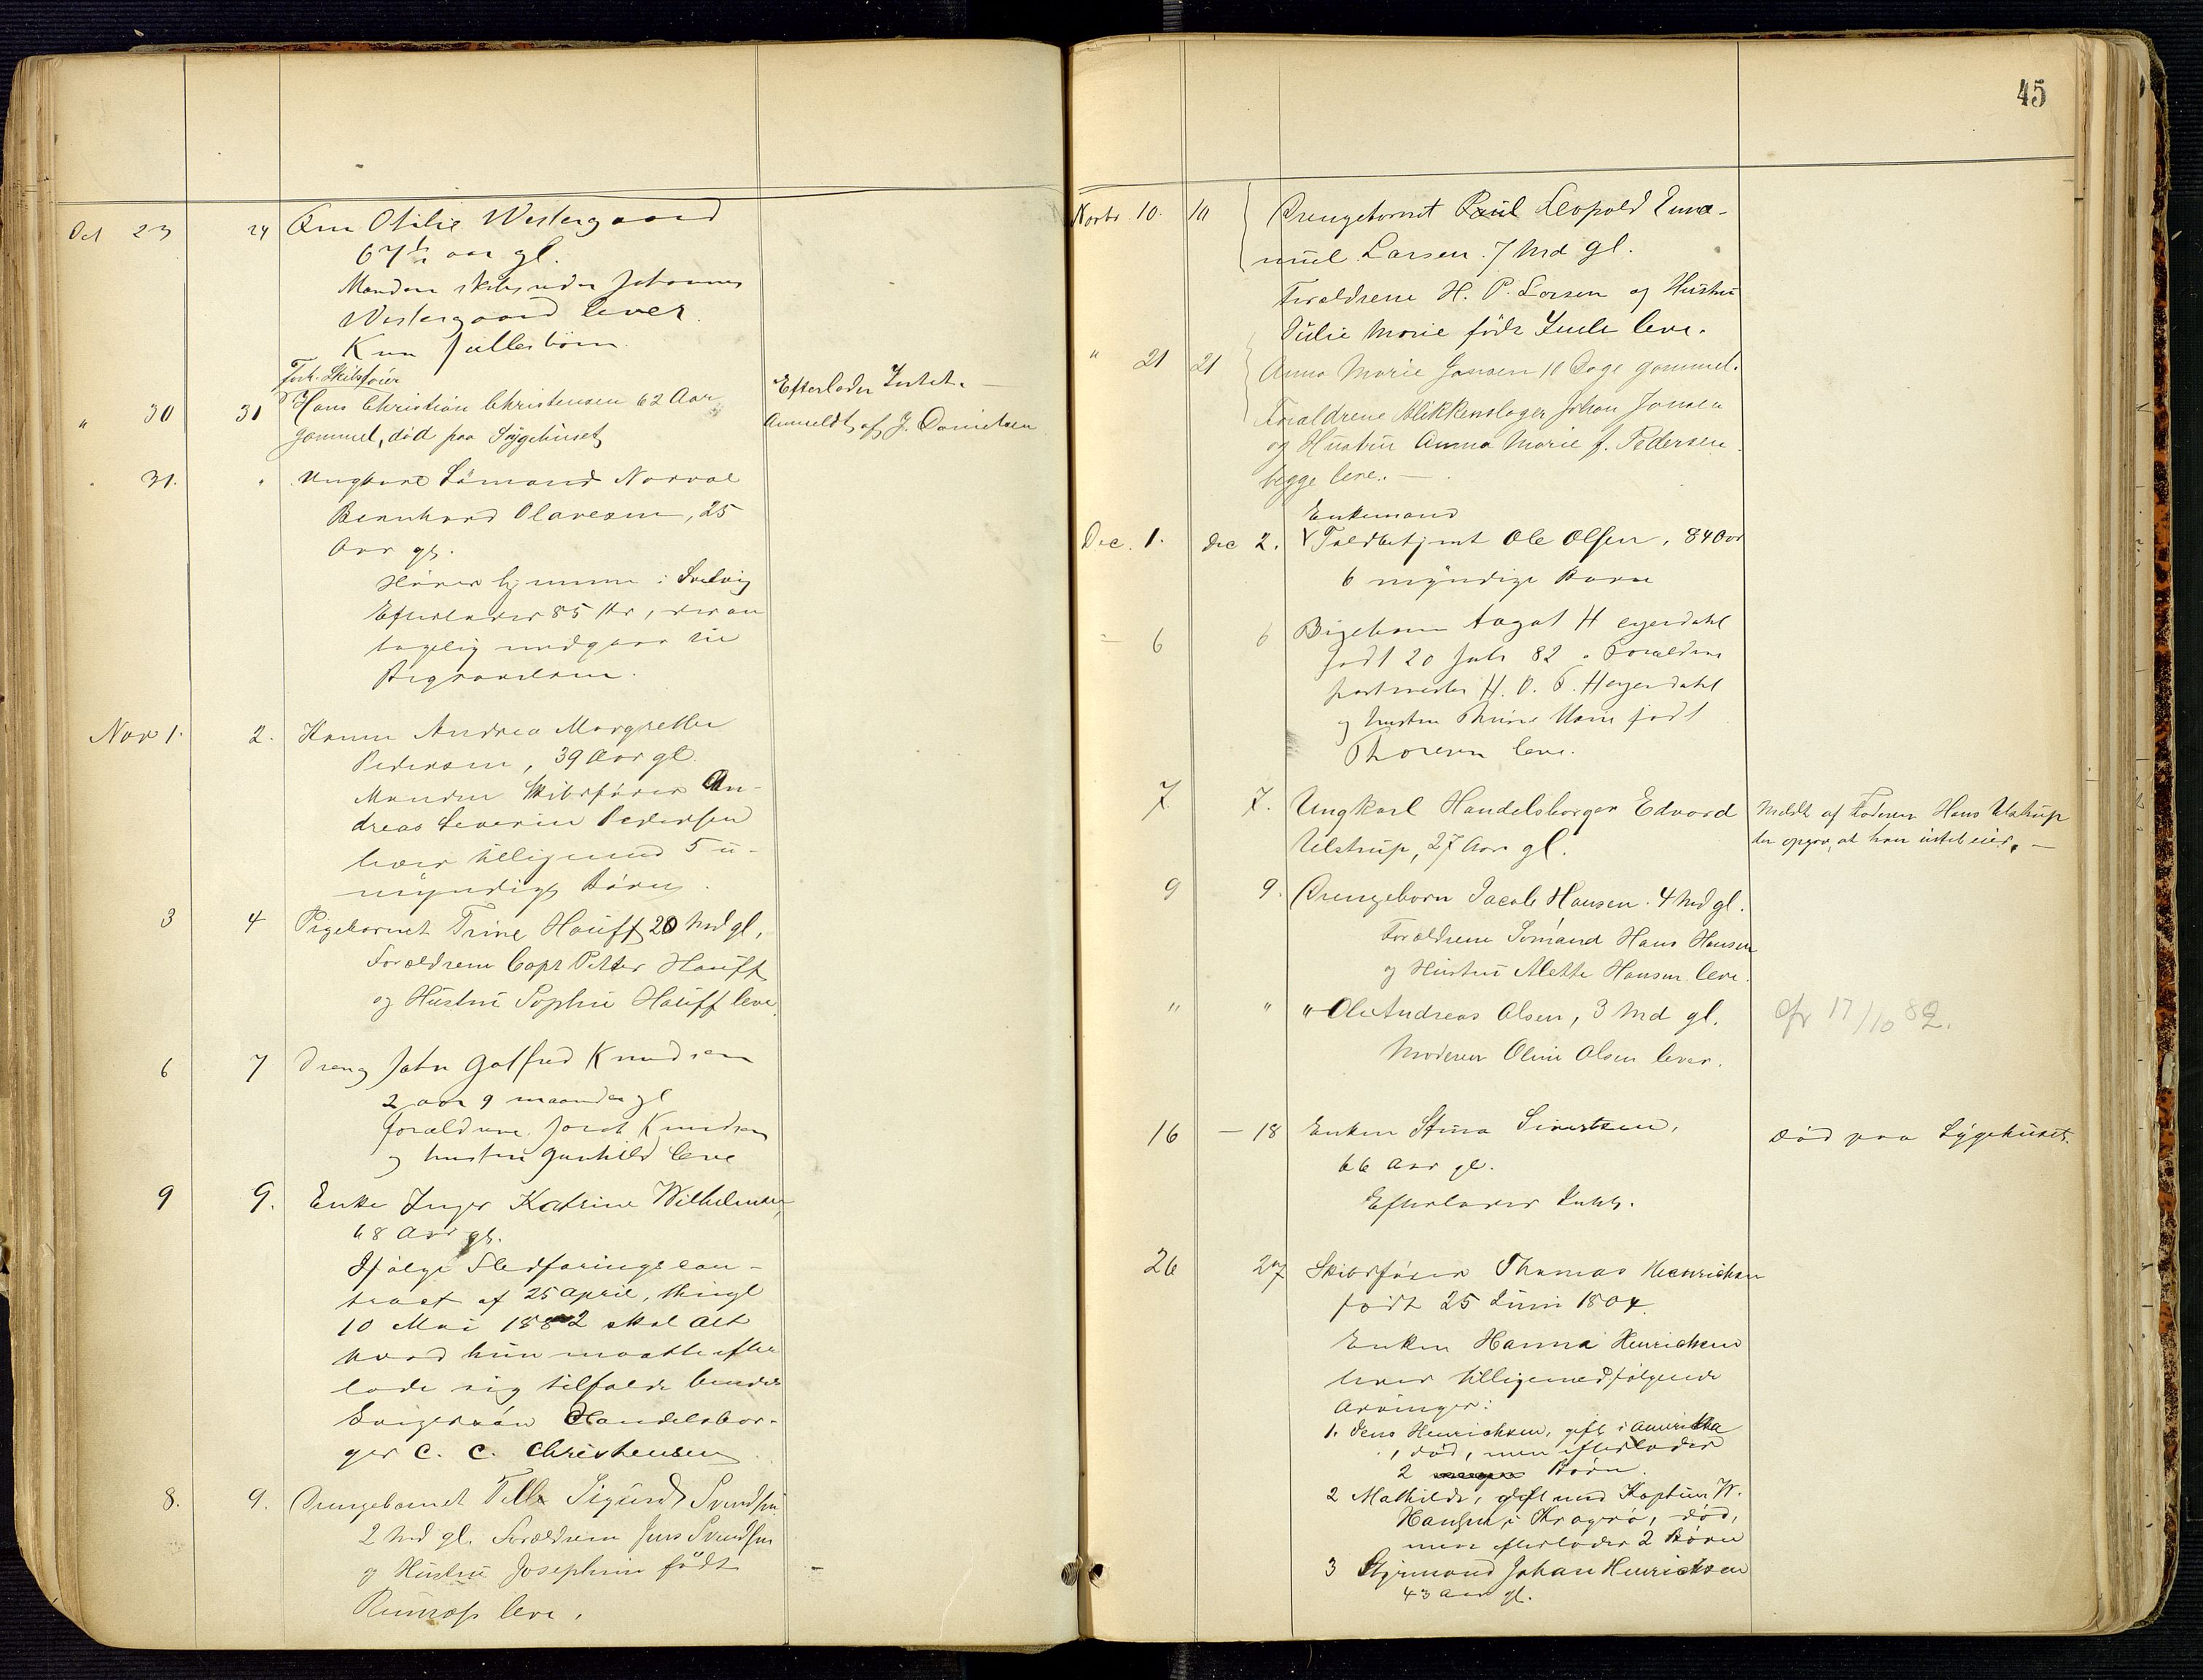 Oct 23 24 Ane Otilie Westergaard
67½ aar gl.
Manden skibsreder Johannes
Westergaard lever.
Kun fællesbörn.
Forh. Skibsförer
" 30 31 Hans Christian Christensen 62 Aar Efterlader Intet. —
gammel, död paa Sygehuset Anmeldt af J. Danielsen
" 31. " Ungkarl Sömand Norval
Bernhard Olavesen, 25
Aar gl.
Hörer hjemme i Svelvig
Efterlader 85 Kr, der an
tagelig medgaar til
Begravelsen.
Nov 1. 2. Hanne Andrea Margrethe
Pedersen, 39 Aar gl.
Manden Skibsförer An-
dreas Severin Pedersen
lever tilligemed 5 u-
myndige Börn.
3 4 Pigebarnet Trine Hauff 20 Md gl,
Forældrene Capt Petter Hauff
og Hustru Sophie Hauff leve.
6 7 Dreng John Gotfred Knudsen
2 aar 9 maaneder gl
forældrene Jacob Knudsen
og hustru Gunhild leve
9 9. Enke Inger Katrine Wilhelmsen,
68 Aar gl.
Ifölge Fledföringscon-
tract af 25 April, thingl
10 Mai 1882 skal Alt
hvad hun maatte efter
lade sig tilfalde hendes
Svigersön Handelsbor-
ger C. C. Christensen
8. 9. Drengebarnet Sigurd Svendsen
2 Md gl. Forældrene Jens Svendsen
og Hustru Josephine född
leve.
45
Novbr. 10. 10 Drengebarnet Paul Leopold Ema-
nuel Larsen. 7 Md gl.
Forældrene H. P. Larsen og Hustru
Julie Marie födt Juule leve.
" 21 21 Anna Marie Jansen 11 Dage gammel.
Forældrene Blikkenslager Johan Jansen
og Hustru Anna Marie f. Pedersen.
begge leve. —
Enkemand
Dec. 1. Dec 2. Toldbetjent Ole Olsen, 84 Aar
6 myndige Börn
" 6 6 Pigebarn Aagot Heyerdahl
født 20 July 82. Forældrene
postmester H. O. P. Heyerdahl
og hustru Marie født
Thoresen leve.
7 7. Ungkarl Handelsborger Edvard Meldt af Faderen Hans Ulstrup
Ulstrup, 27 Aar gl. der opgav, at han intet eier. —
9 9. Drengebarn Jacob Hansen. 4 Md gl.
Forældrene Sömand Hans Hansen
og Hustru Alette Hansen leve.
" " " Ole Andreas Olsen, 3 Md gl. Cfr 17/10 82.
Moderen Oline Olsen lever.
16 — 18 Enken Stina Sivertsen, Död paa Sygehuset.
66 Aar gl.
Efterlader Intet.
26 27 Skibsförer Thomas Henrichsen
födt 25 Juni 1804.
Enken Hanna Henrichsen
lever tilligemed fölgende
Arvinger:
1. Jens Henrichsen, gift i Amerikka
, död, men efterlader
2 Börn.
2 Mathilde, gift med Kaptein W.
Hansen i Kragerö, död,
men efterlader 2 Börn
3 Styrmand Johan Henrichsen
43 Aar gl.